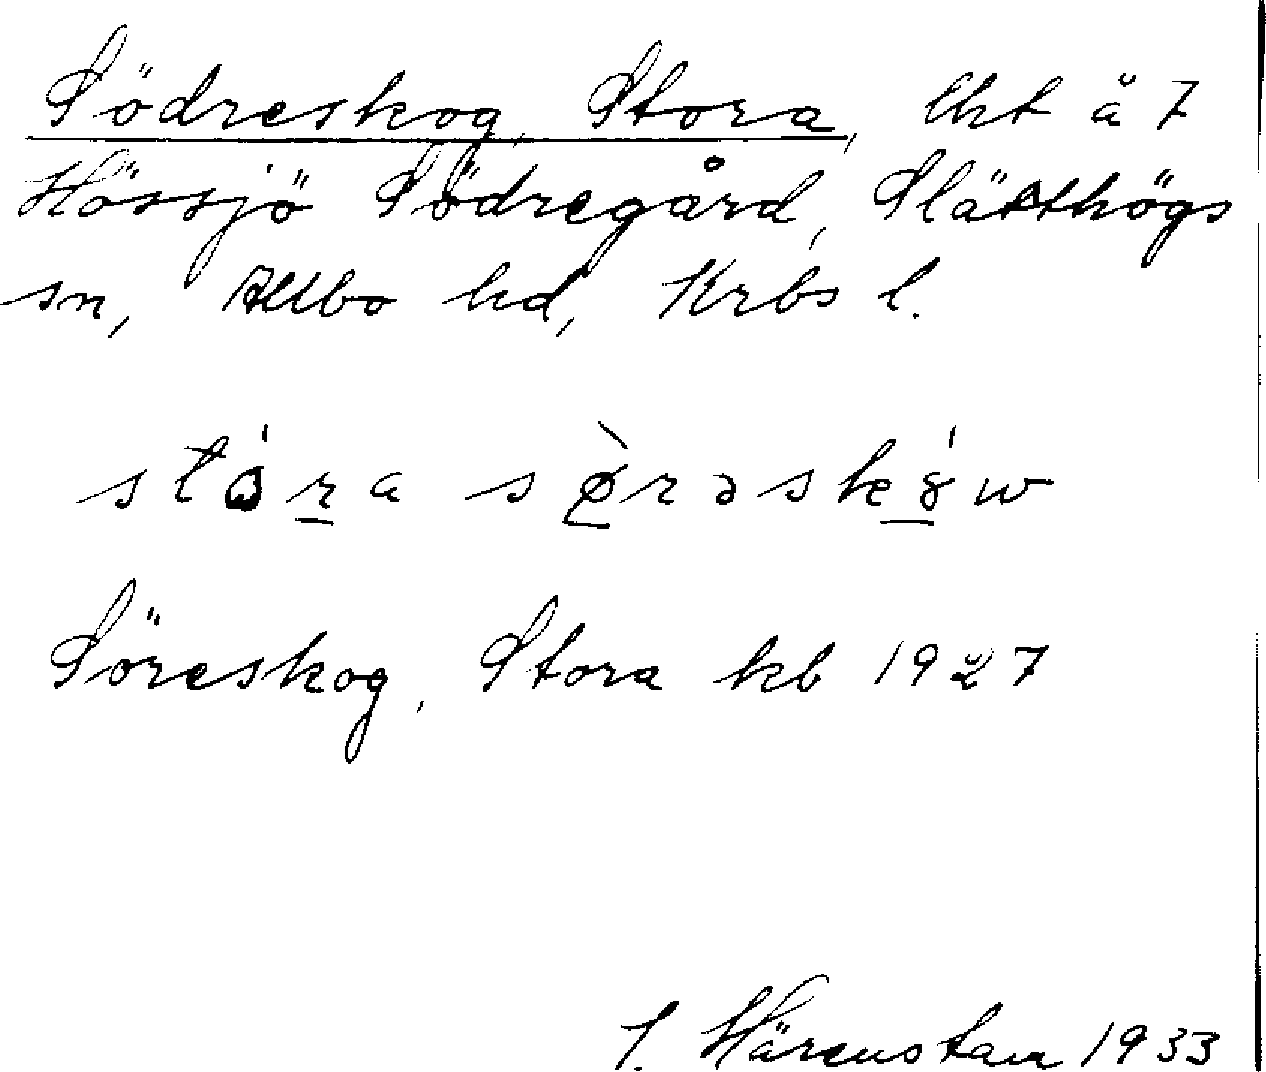 Södreskog, Stora, lht å 7
Hössjö Södregård, Slätthögs
sn, Allbo hd, Krbs l.
stóra sø̀rəskó̱w
Söreskog, Stora kb 1927
J. Härenstam 1933